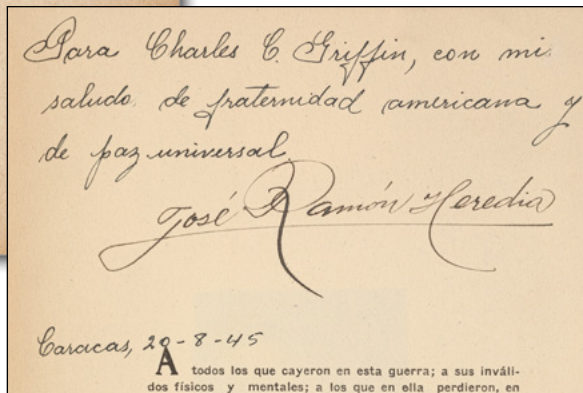 Para Charles C. Griffin, con mi
saludo de fraternidad americana y
de paz universal.
José Ramón Heredia
Caracas, 20-8-45
A todos los que cayeron en esta guerra; a sus inváli-
dos físicos y mentales; a los que en ella perdieron, en